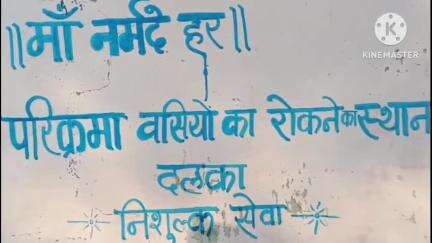 ॥माँ नर्मदे हर॥
KINEMASTER
परिक्रमा वसियो का रोकने का स्थान
दलका
निशुल्क सेवा